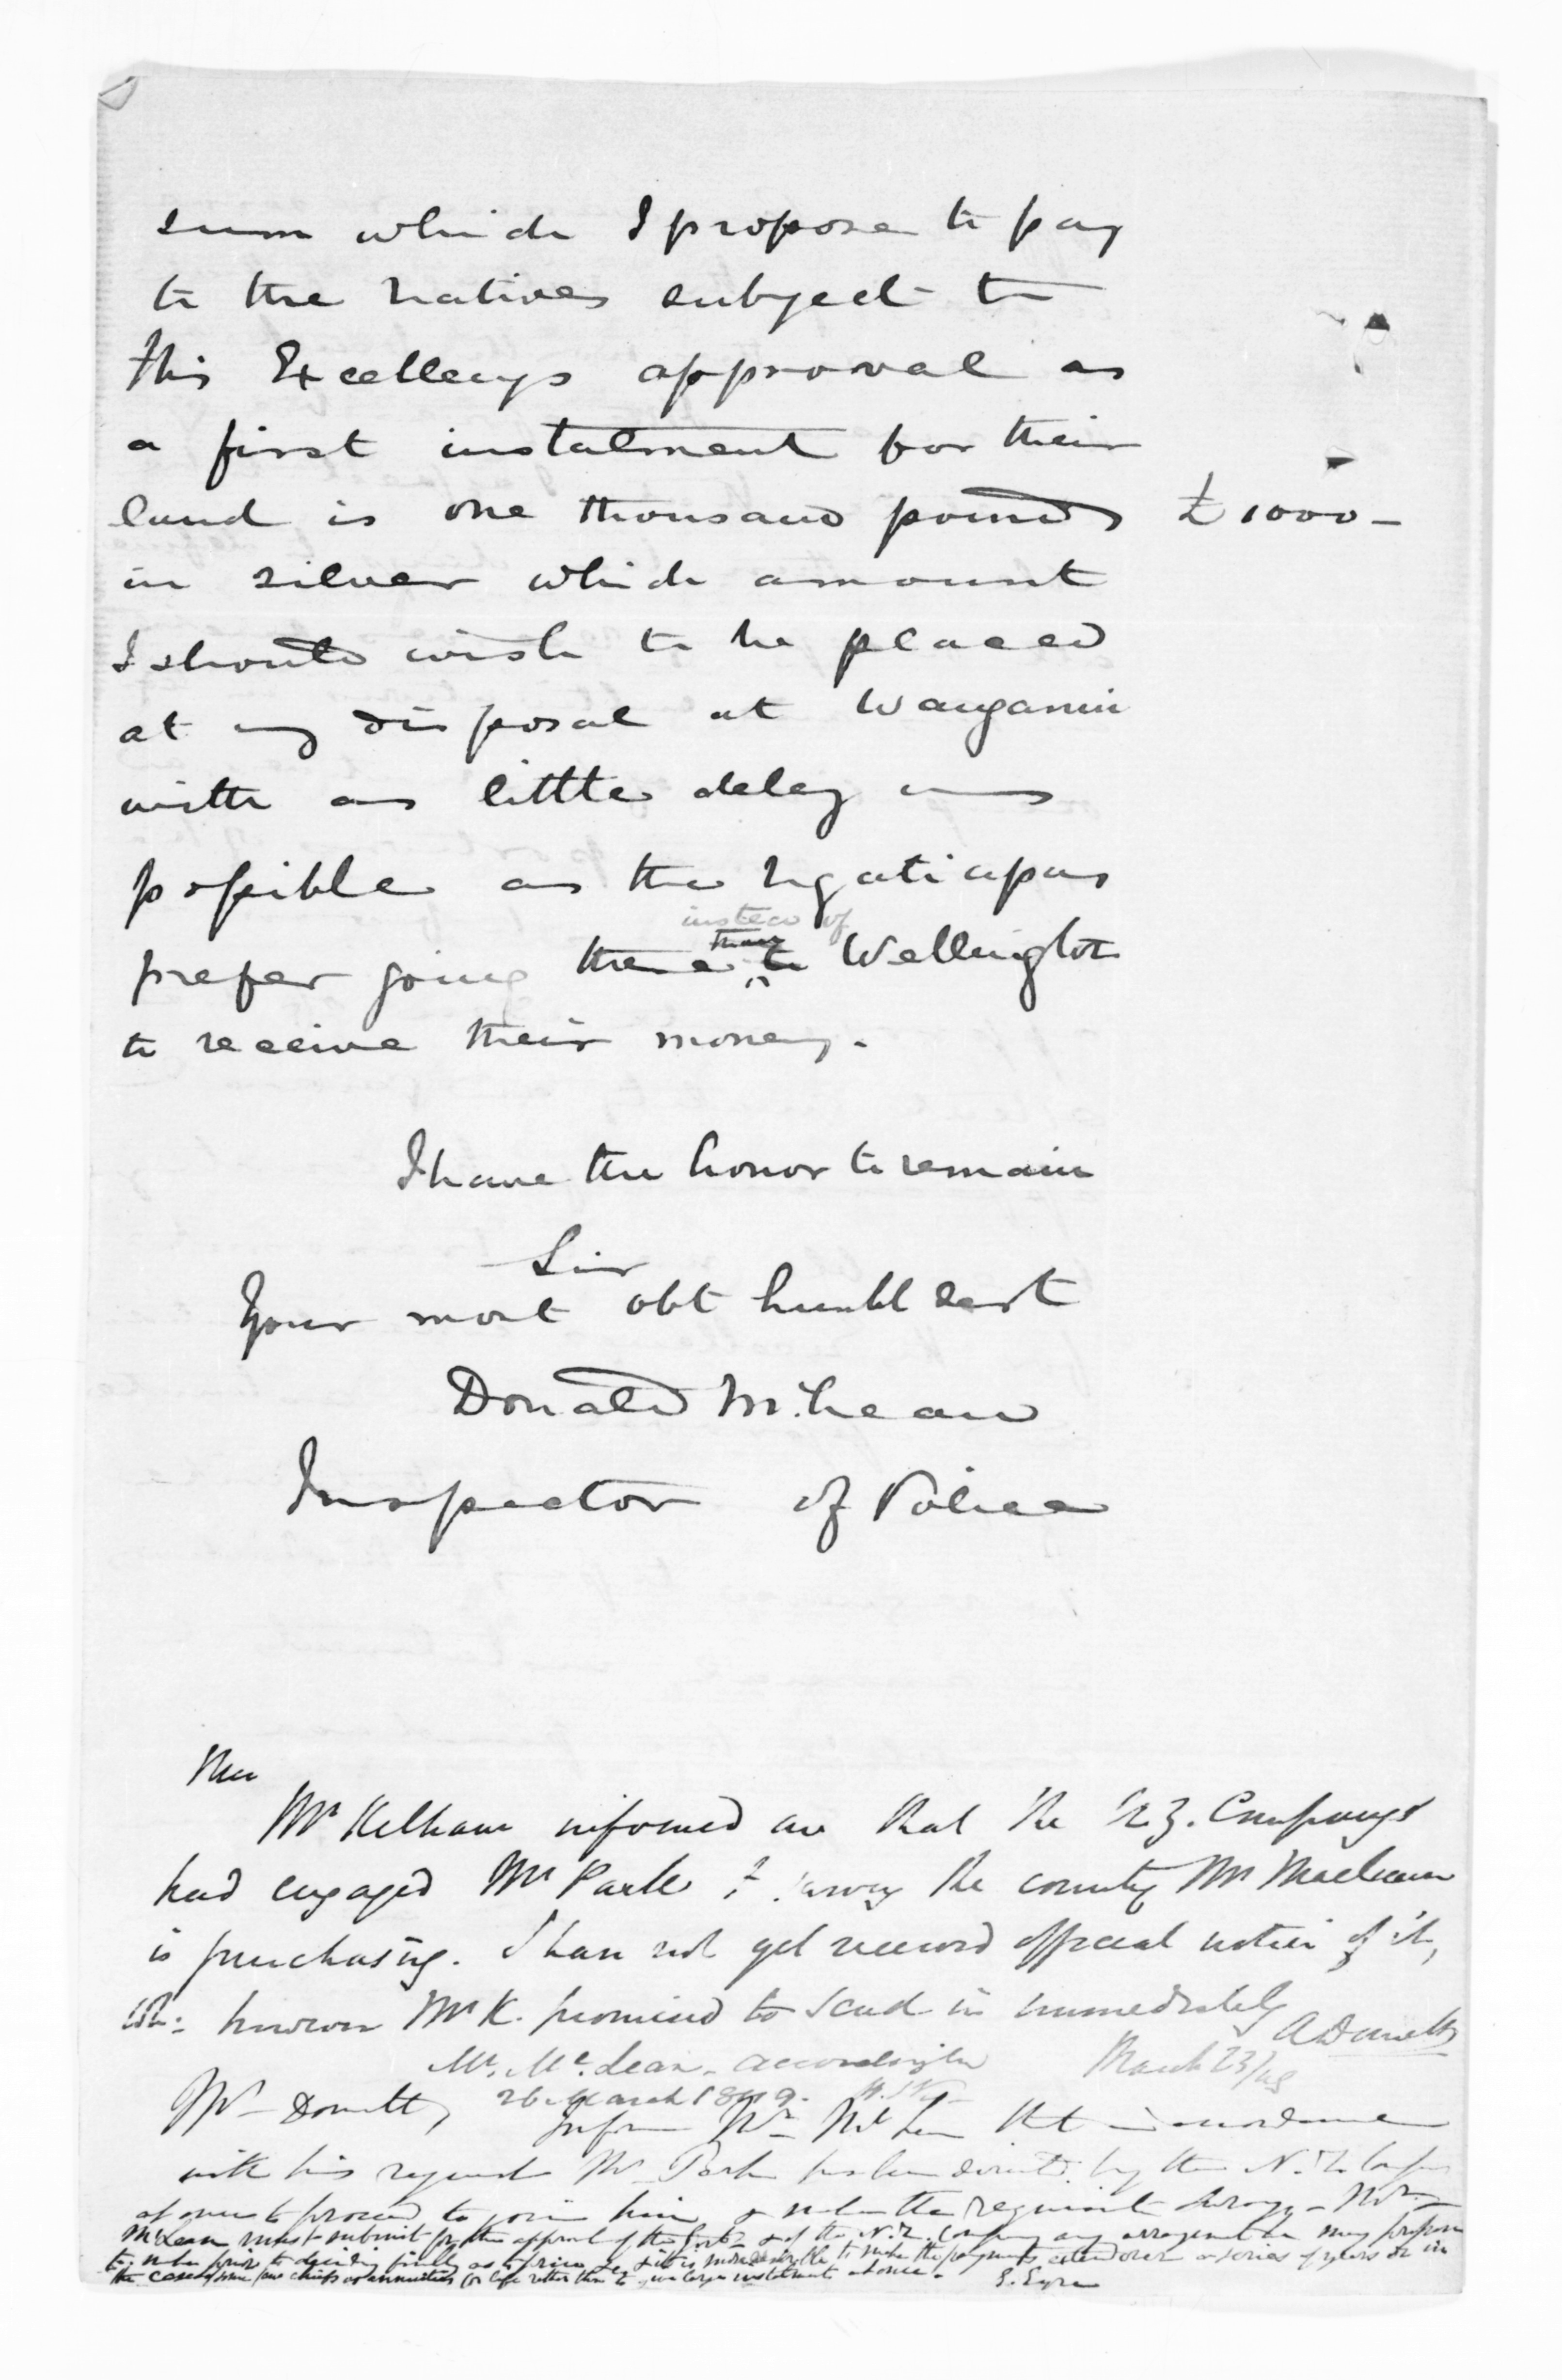 sum which I propose to pay
to the natives subject to
His Excellencys approval as
a first instalment for their
land is one thousand pounds £1000-
in silver which amount
I should wish to be placed
at my disposal at Wanganui
with as little delay as
possible as the Ngatiapas
instead of
than
prefer going there to Wellington
to receive their money.
I have the honor to remain
Sir
Your most obt humbl sert
Donald McLean
Inspector of Police
Mr Kelham informed me that the N.Z. Company
had engaged Mr Park to survey the country Mr Maclean
is purchasing. I have not yet received official notice of it,
however Mr K. promised to send in immediately
ADomett
Mr. McLean. accordingly
March 23/49
26 March 1849.
Mr Domett, Inform Mr McLean that in accordance
with his request Mr Park has been directed by the N.Z. Compy
at once to proceed to join him & make the requisite surveys - Mr
McLean must submit for the approval of the Govt & of the N.Z. Company any arrangement he may propose
to make prior to deciding finally as to price & it is more desirable to make the payments extend over a series of years or in
the case of some few chiefs as annuities for life rather than to give large instalments at once. E. Eyre